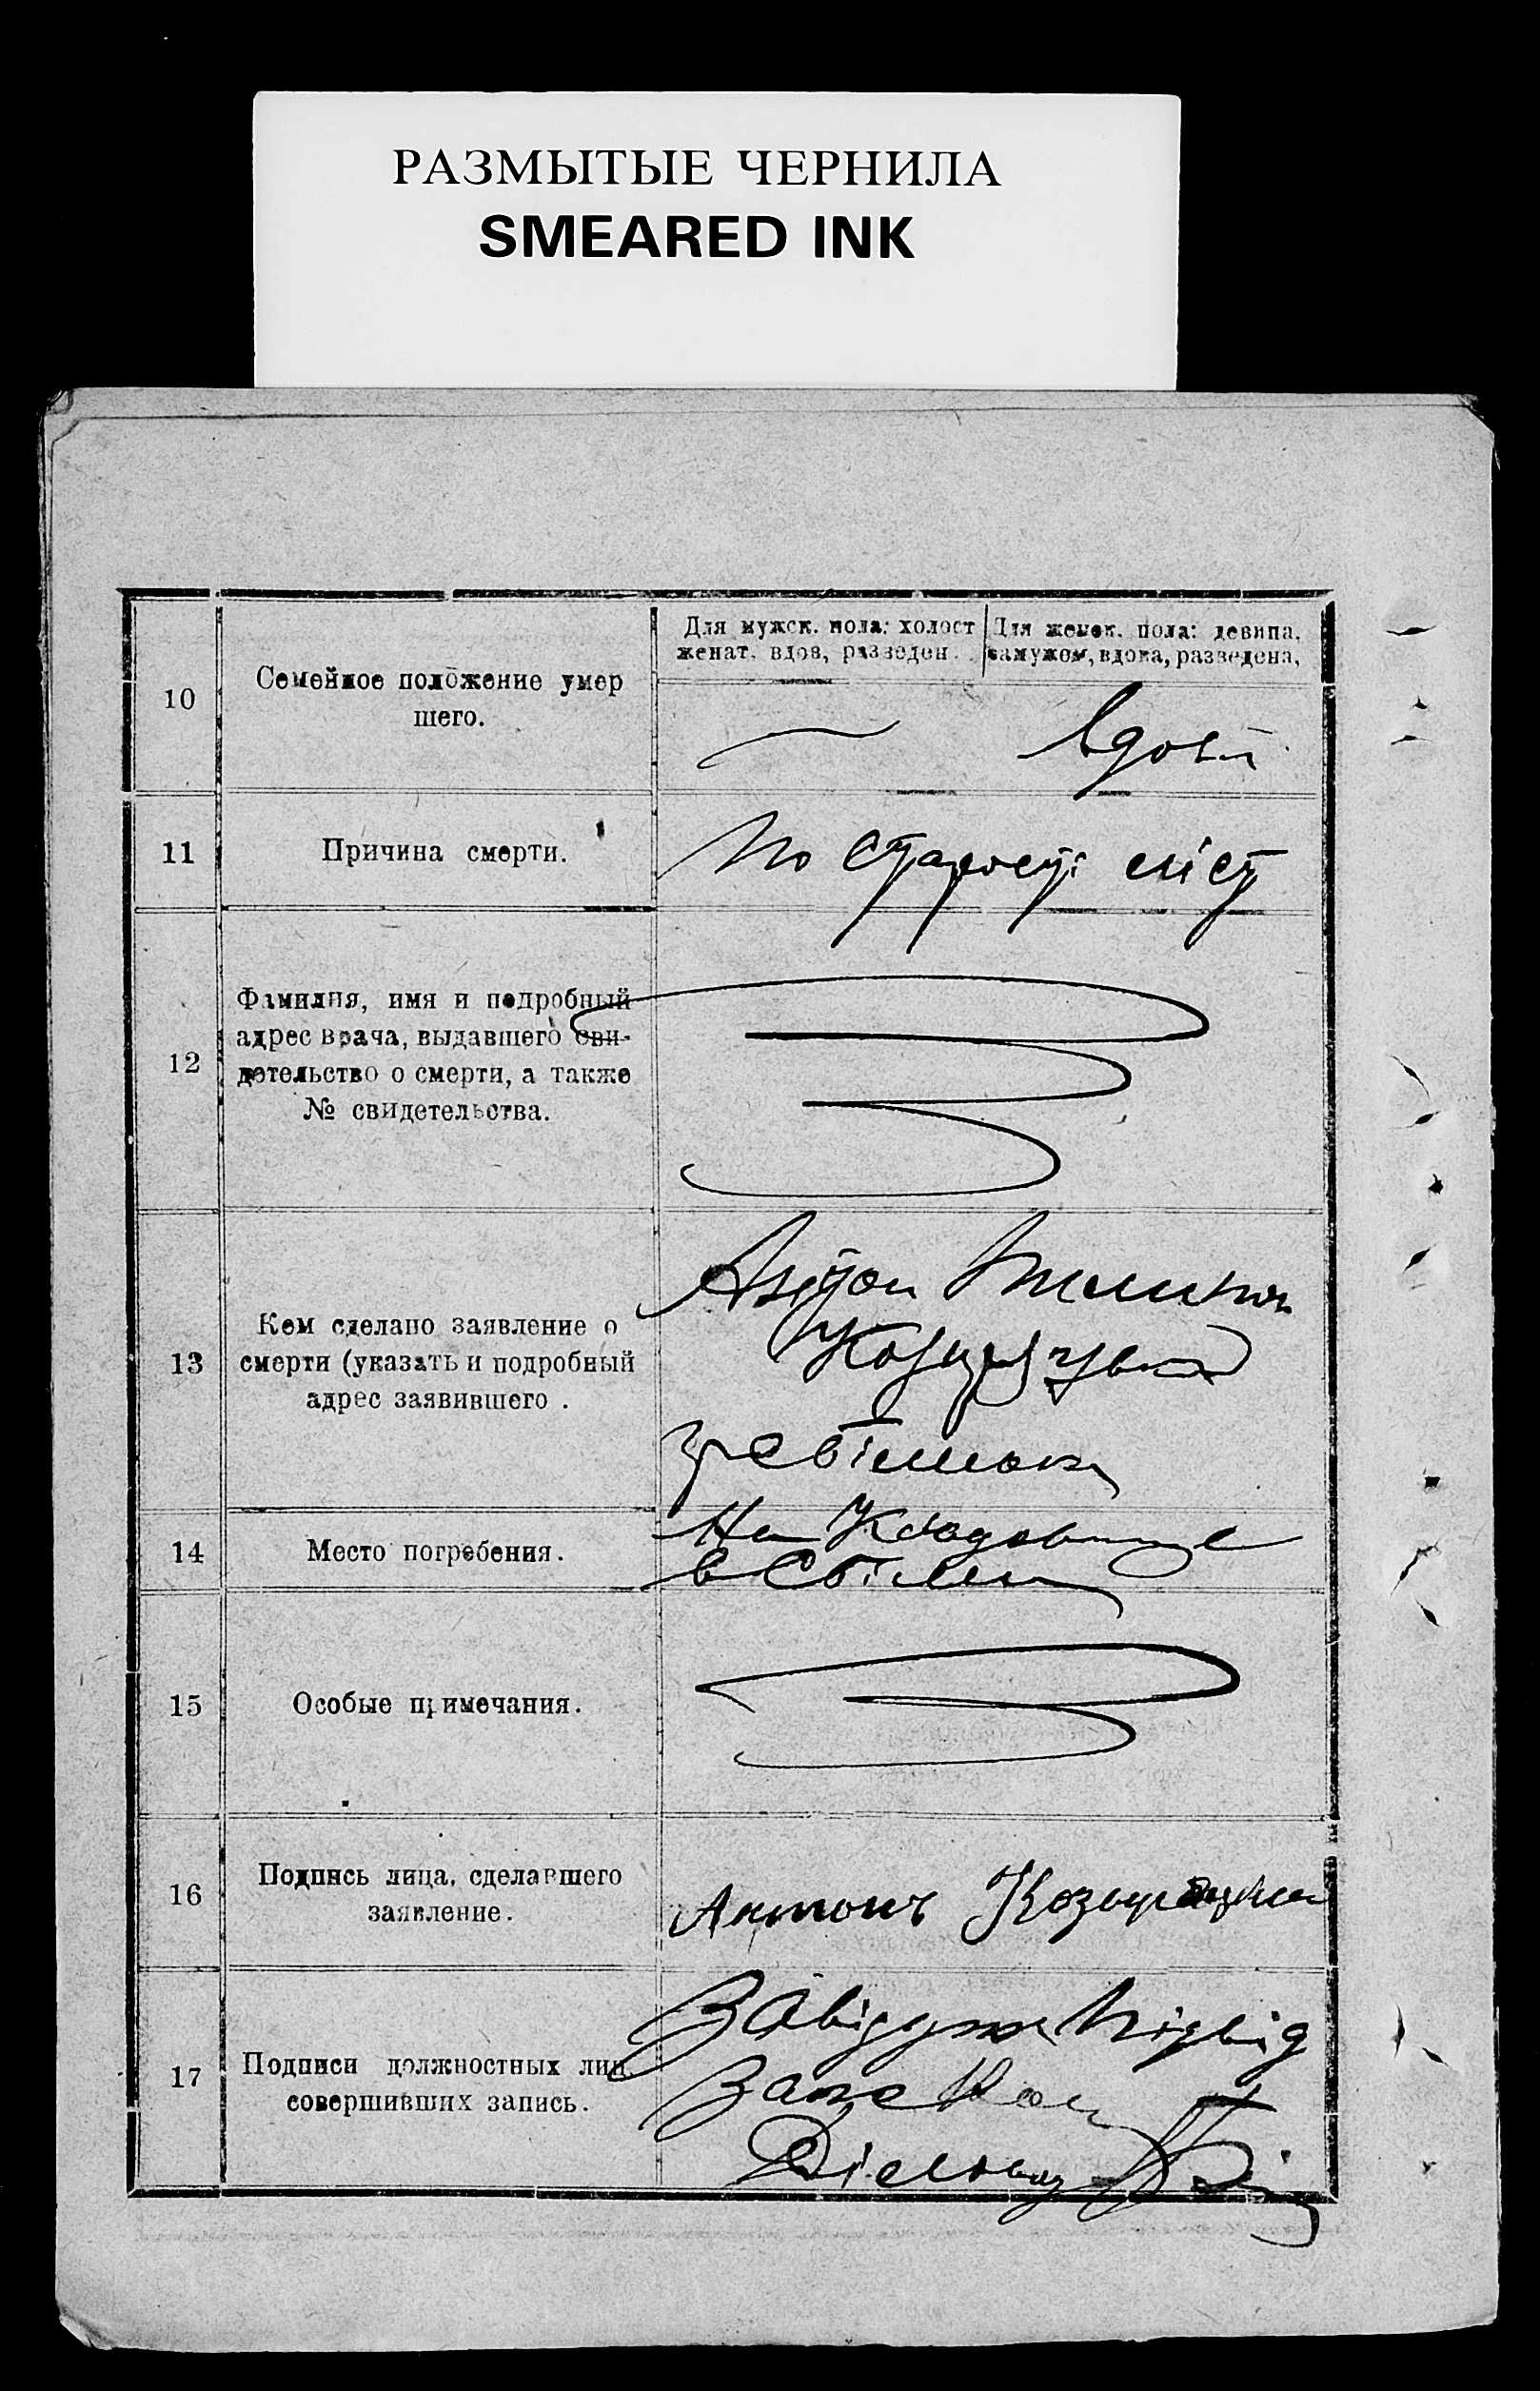 РАЗМЫТЫЕ ЧЕРНИЛА
SMEARED INK
Для мужск. пола: холост
женат, вдов, разведен.
Для женск. пола: девица,
замужем, вдова, разведена,
10
Семейное положение умер
шего.
Вдова
11
Причина смерти.
По старості літ
12
Фамилия, имя и подробный
адрес врача, выдавшего сви-
детельство о смерти, а также
№ свидетельства.
13
Кем сделано заявление о
смерти (указать и подробный
адрес заявившего .
Антон
14
Место погребения.
На Кладовище
в
15
Особые примечания.
16
Подпись лица, сделавшего
заявление.
Антонъ
17
Подписи должностных лиц,
совершивших запись.
Завідуюч
Діловод